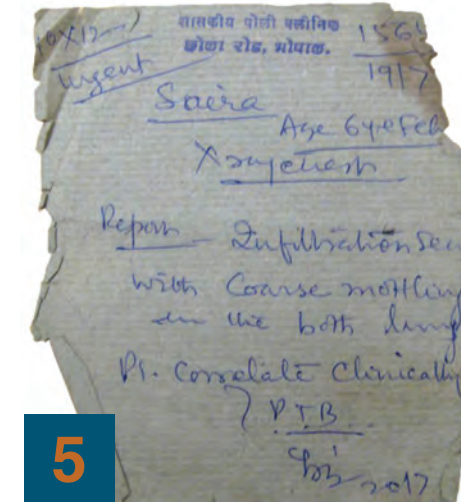 (10X12)
urgent
शासकीय पोली क्लीनिक
छोला रोड, भोपाल.
1565
19/7
Saira
Age 64
X ray chest
Report Infiltration See
with Coarse mottling
in the both lung
Pt. Correlate Clinically
? P.T.B
2017
5